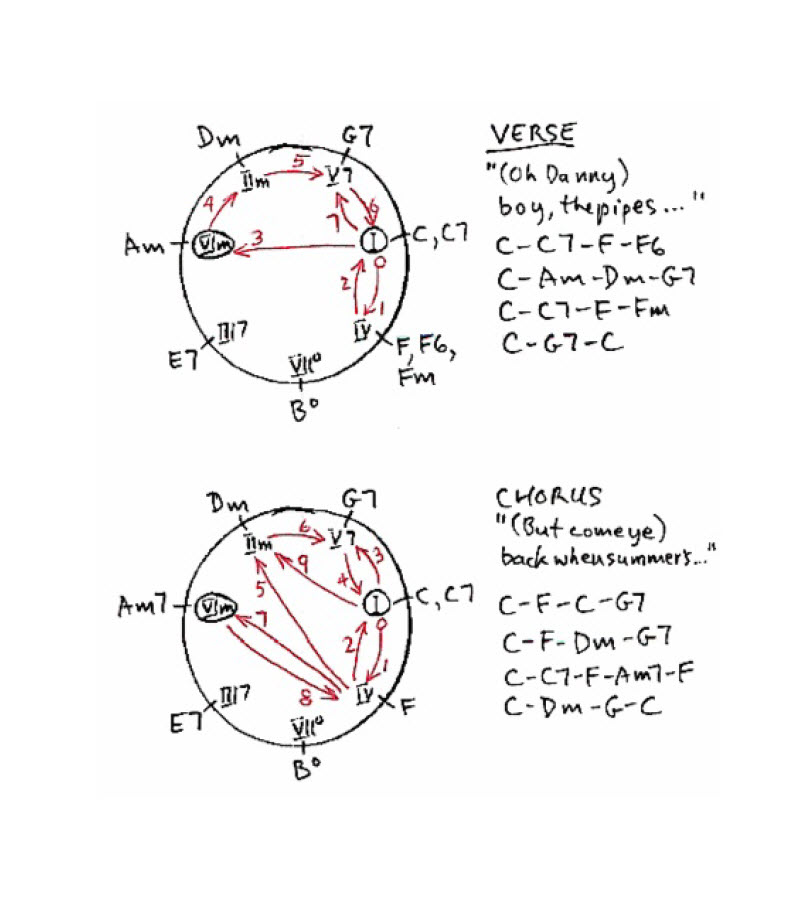 Dm G7 VERSE
IIm 5 V7 "(Oh Danny)
4 7 6 boy, the pipes..."
Am VIm 3 I C, C7 C-C7-F-F6
0 C-Am-Dm-G7
2 1 C-C7-F-Fm
E7 III7 IV F, F6, C-G7-C
VII° Fm
B°
Dm G7 CHORUS
IIm 6 V7 "(But come ye)
9 4 3 back when summer's..."
5
Am7 VIm 7 I C, C7 C-F-C-G7
0 C-F-Dm-G7
2 1
8 C-C7-F-Am7-F
E7 III7 IV F C-Dm-G-C
VII°
B°